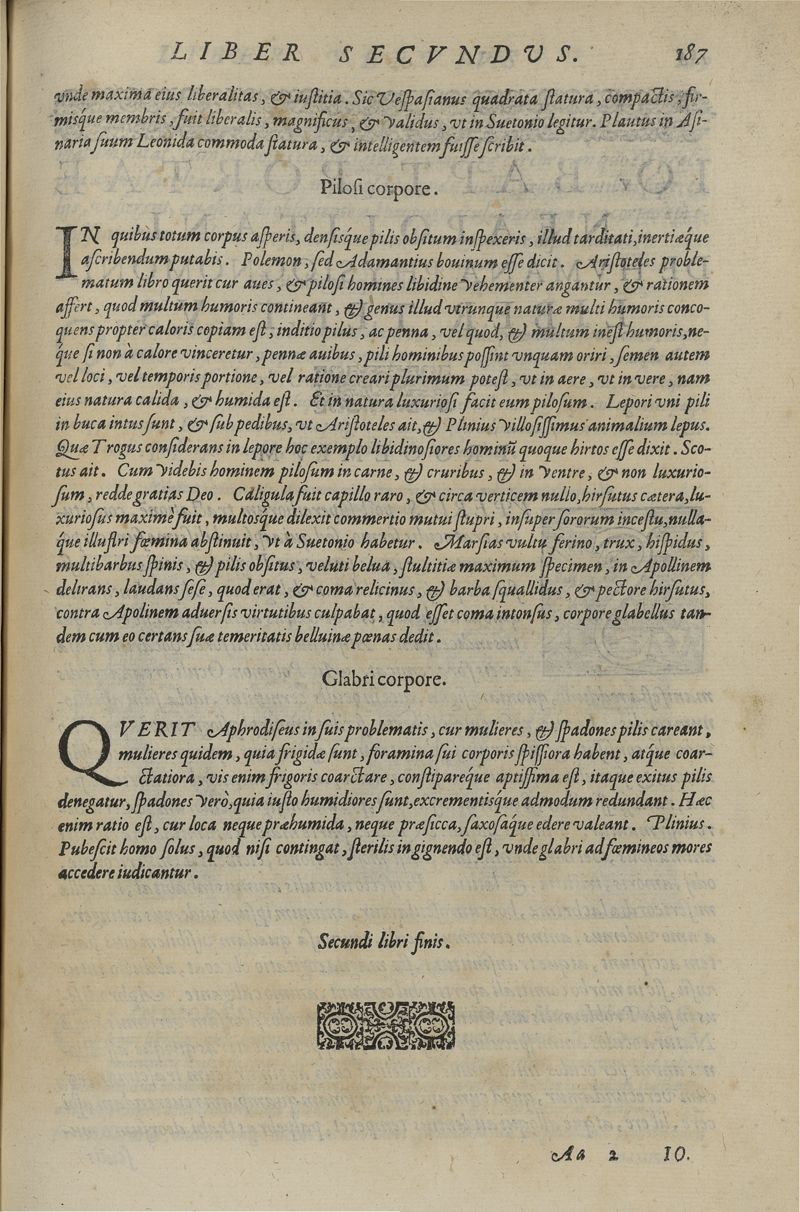 LIBER SECVNDVS. 187
vnde maxima eius liberalitas, & iuſtitia. Sic Veſpaſianus quadrata ſtatura, compactis, fir-
misque membris, fuit liberalis, magnificus, & validus, vt in Suetonio legitur. Plautus in Aſi-
naria ſuum Leonida commoda ſtatura, & intelligentem fuiſſe ſcribit.
Piloſi corpore.
IN quibus totum corpus aſperis, denſiſq́ue pilis obſitum inſpexeris, illud tarditati, inertiæq́ue
aſcribendum putabis. Polemon, ſed Adamantius bouinum eſſe dicit. Ariſtoteles proble-
matum libro querit cur aues, & piloſi homines libidine vehementer angantur, & rationem
affert, quod multum humoris contineant, & genus illud vtrunque naturæ multi humoris conco-
quens propter caloris copiam eſt, inditio pilus, ac penna, vel quod, & multum ineſt humoris, ne-
q́ue ſi non à calore vinceretur, pennæ auibus, pili hominibus poſſint vnquam oriri, ſemen autem
vel loci, vel temporis portione, vel ratione creari plurimum poteſt, vt in aere, vt in vere, nam
eius natura calida, & humida eſt. Et in natura luxurioſi facit eum piloſum. Lepori vni pili
in buca intus ſunt, & ſub pedibus, vt Ariſtoteles ait, & Plinius villoſiſſimus animalium lepus.
Quæ Trogus conſiderans in lepore hoc exemplo libidinoſiores hominũ quoque hirtos eſſe dixit. Sco-
tus ait. Cum videbis hominem piloſum in carne, & cruribus, & in ventre, & non luxurio-
ſum, redde gratias Deo. Caligula fuit capillo raro, & circa verticem nullo, hirſutus cætera, lu-
xurioſus maximè fuit, multosque dilexit commertio mutui ſtupri, inſuper ſororum inceſtu, nulla-
q́ue illuſtri fœmina abſtinuit, vt à Suetonio habetur. Marſias vultu ferino, trux, hiſpidus,
multibarbus ſpinis, & pilis obſitus, veluti belua, ſtultitiæ maximum ſpecimen, in Apollinem
delirans, laudans ſeſe, quod erat, & coma relicinus, & barba ſquallidus, & pectore hirſutus,
contra Apolinem aduerſis virtutibus culpabat, quod eſſet coma intonſus, corpore glabellus tan-
dem cum eo certans ſuæ temeritatis belluinæ pœnas dedit.
Glabri corpore.
QVERIT Aphrodiſeus in ſuis problematis, cur mulieres, & ſpadones pilis careant,
mulieres quidem, quia frigidæ ſunt, foramina ſui corporis ſpiſſiora habent, atq́ue coar-
ctatiora, vis enim frigoris coarctare, conſtipareq́ue aptiſſima eſt, itaque exitus pilis
denegatur, ſpadones verò, quia iuſto humidiores ſunt, excrementiſq́ue admodum redundant. Hæc
enim ratio eſt, cur loca neque præhumida, neque præſicca, ſaxoſaq́ue edere valeant. Plinius.
Pubeſcit homo ſolus, quod niſi contingat, ſterilis in gignendo eſt, vnde glabri ad fœmineos mores
accedere iudicantur.
Secundi libri finis.
Aa 2 IO.